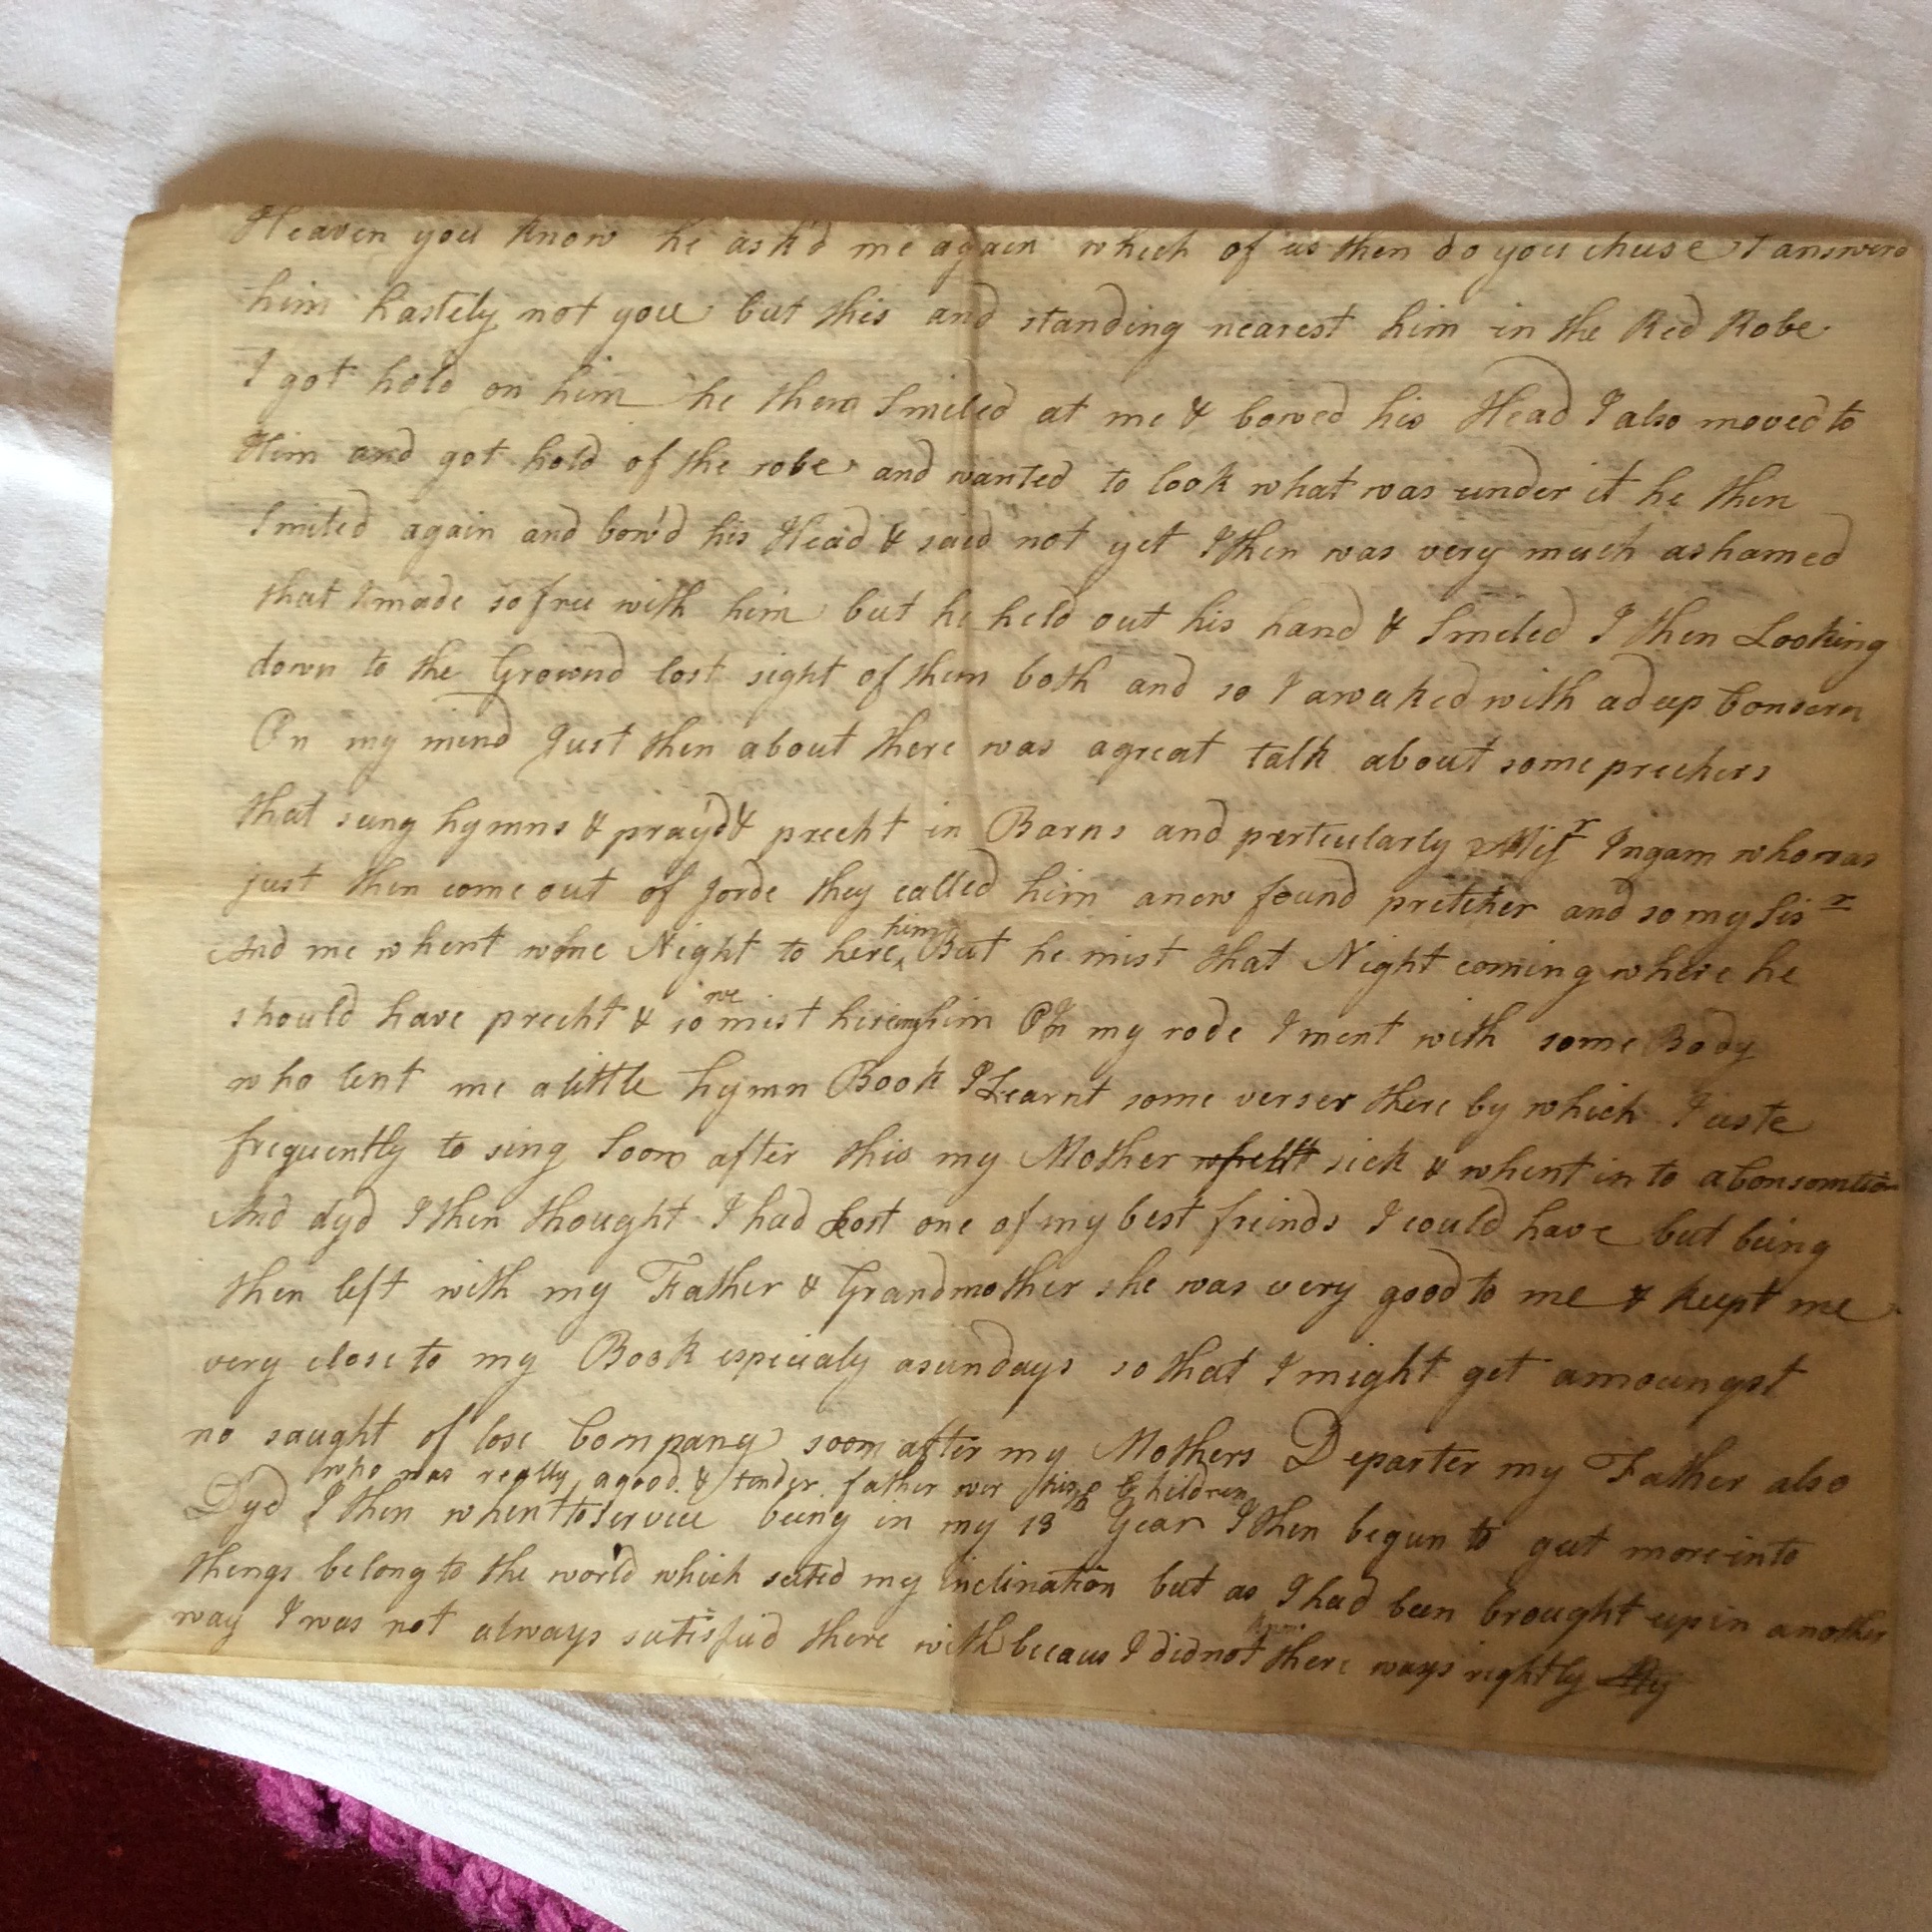 Heaven you know he ask'd me again which of us then do you chuse I answerd
him hastely not you but this and standing nearest him in the Red Robe
I got hold on him he then Smiled at me & bowed his Head I also moved to
Him and got hold of the robe and wanted to look what was under it he then
Smiled again and bow'd his Head & said not yet I then was very much ashamed
that I made so free with him but he held out his hand & Smiled I then Looking
down to the Ground lost sight of them both and so I awaked with a deep Consern
On my mind Just then about there was a great talk about some prechers
that sung hymns & pray'd & precht in Barns and perticularly Ingam who was
just then come out of Jorde they called him a new found pretcher and so my Sisr
And me whent wone Night to here him But he mist that Night coming where he
should have precht & so we mist hireing him On my rode I ment with some Body
who lent me a little hymn Book I Learnt some verser there by which I uste
frequently to sing Soon after this my Mother sick & whent in to a Consomtion
And dyd I then thought I had Lost one of my best friends I could have but being
then left with my Father & Grandmother she was very good to me & keept me
very close to my Book especialy a sundays so that I might get amoungst
no saught of lose Company soon after my Mothers Departer my Father also
who was really a good & tender father over his Children
Dyd I then whent to Servece being in my 13 Year I then begun to get more into
things belong to the world which suted my inclination but as I had been brought up in another
way I was not always satisfied there with becaus I did not there ways rightly My